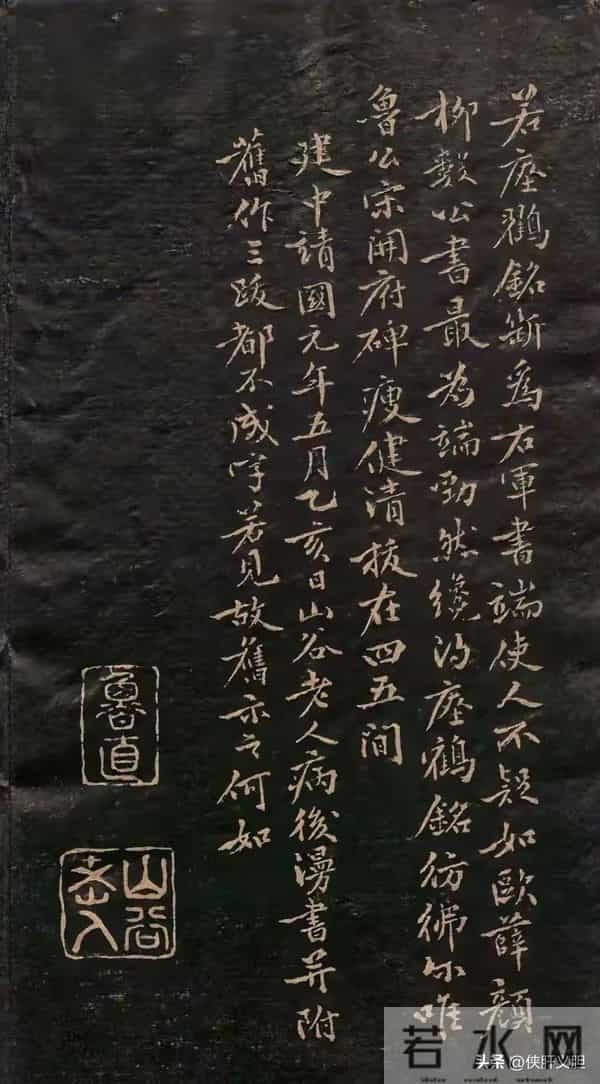 若瘞鶴銘斷為右軍書端使人不疑如歐薛顏
柳數公書最為端勁然纔得瘞鶴銘彷彿尔唯
魯公宋開府碑瘦健清拔在四五間
建中靖國元年五月乙亥日山谷老人病後漫書并附
舊作三跋都不成字若見故舊示之何如
魯直
山谷老人
若水网
头条 @侠肝义胆